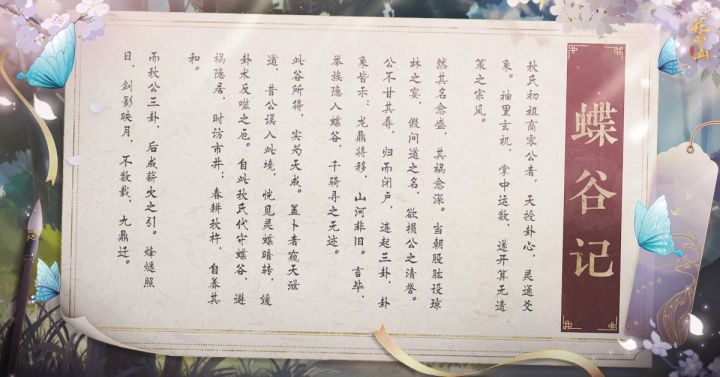 蝶谷记
秋氏初祖商零公者，天授卦心，灵通爻
象。袖里玄机，掌中运数，遂开算无遗
策之宗风。
然其名愈盛，其祸愈深。当朝股肱设琼
林之宴，假问道之名，欲损公之清誉。
公不甘其辱，归而闭户，连起三卦，卦
象皆示：龙鼎将移，山河非旧。言毕，
举族隐入蝶谷，千骑寻之无迹。
此谷所得，实为天成。盖卜者窥天泄
道，昔公误入此境，恍见灵蝶暗转，缓
卦术反噬之厄。自此秋氏代守蝶谷，避
祸隐居，时访市井；春耕秋杵，自养其
和。
而秋公三卦，后成薪火之引。烽燧照
日，剑影映月，不数载，九鼎迁。
花亦山